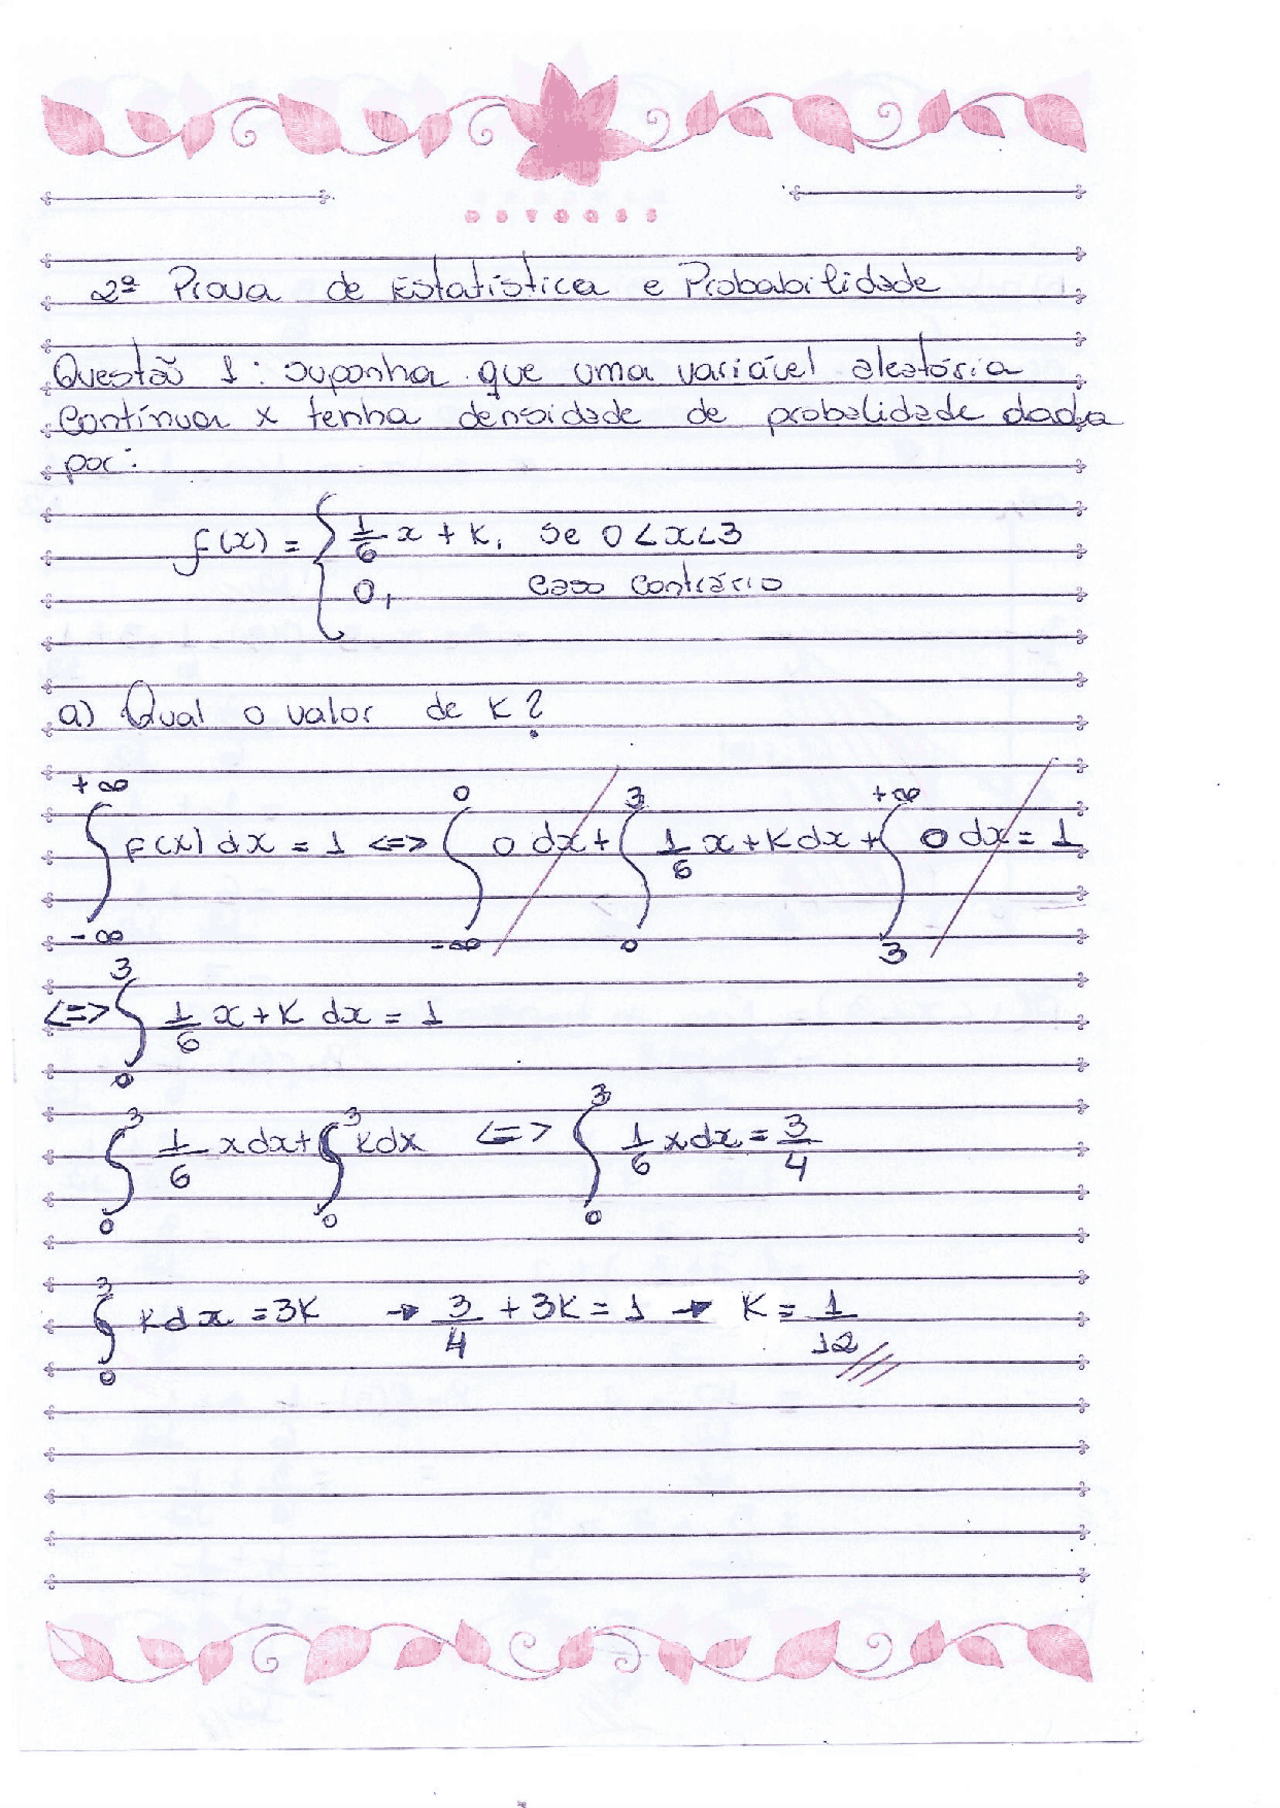 2ª Prova de Estatística e Probabilidade
Questão 1: suponha que uma variável aleatória
contínua x tenha densidade de probalidade dada
por:
f(x) = { 1/6 x + k, se 0 < x < 3
0, caso contrário
a) Qual o valor de k?
∫_{-∞}^{+∞} f(x) dx = 1 <=> ∫_{-∞}^{0} 0 dx + ∫_{0}^{3} 1/6 x + k dx + ∫_{3}^{+∞} 0 dx = 1
<=> ∫_{0}^{3} 1/6 x + k dx = 1
∫_{0}^{3} 1/6 x dx + ∫_{0}^{3} k dx <=> ∫_{0}^{3} 1/6 x dx = 3/4
∫_{0}^{3} k dx = 3k → 3/4 + 3k = 1 → k = 1/12